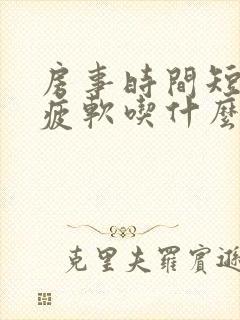 房事時間短
疲軟喫什麼
克里夫羅賓遜